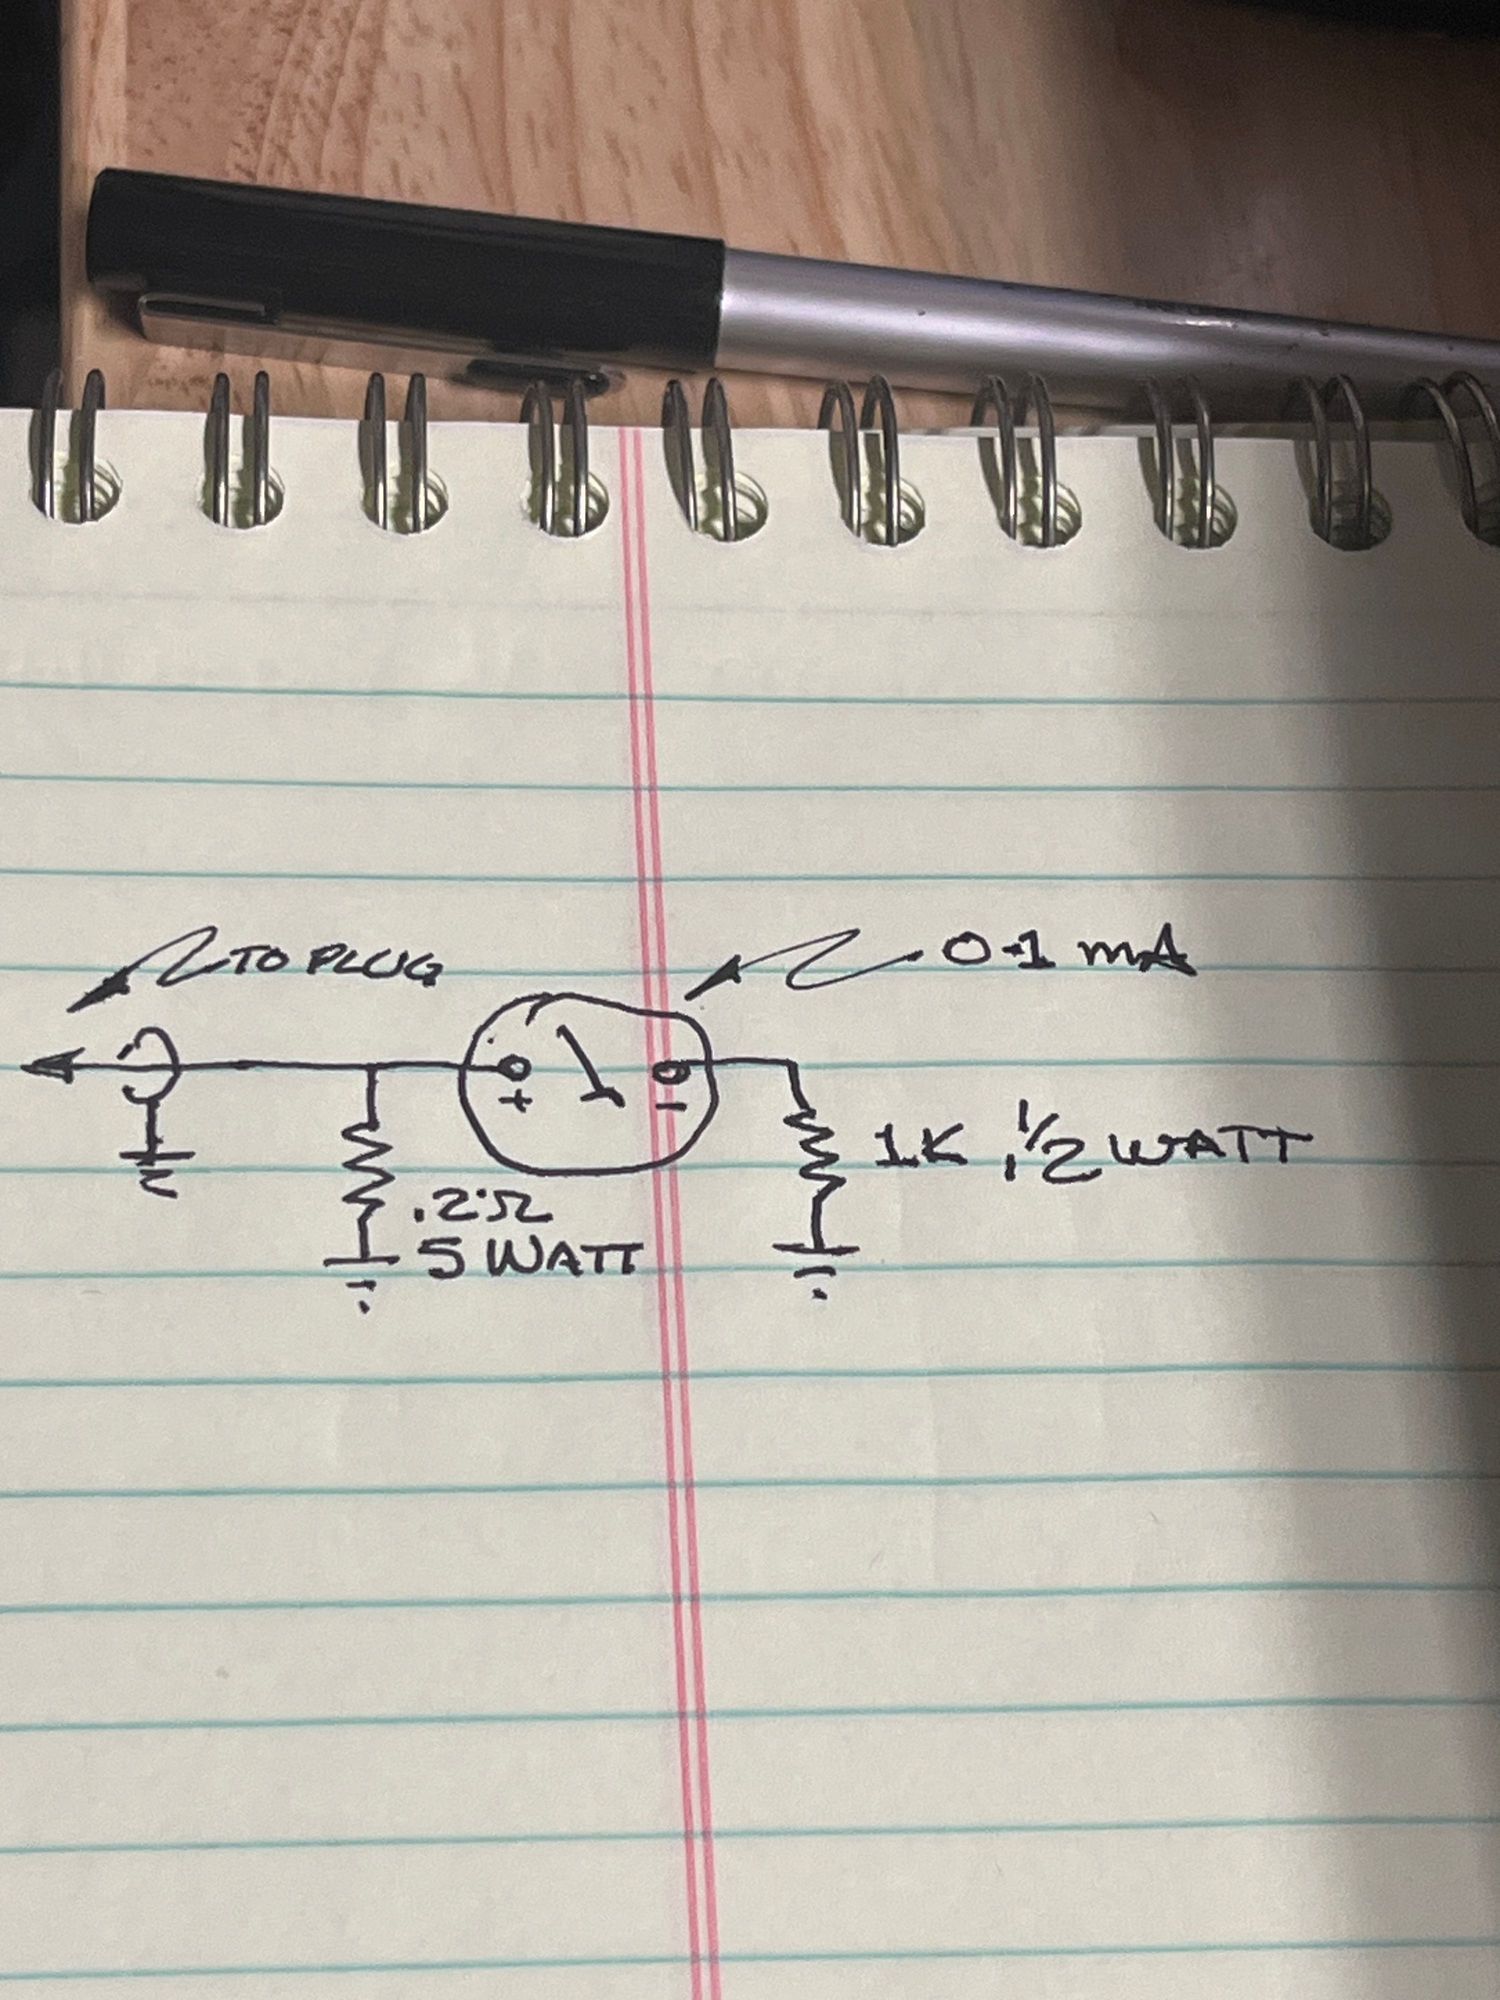 TO PLUG
0-1 mA
+
-
1K, 1/2 WATT
.2Ω
5 WATT